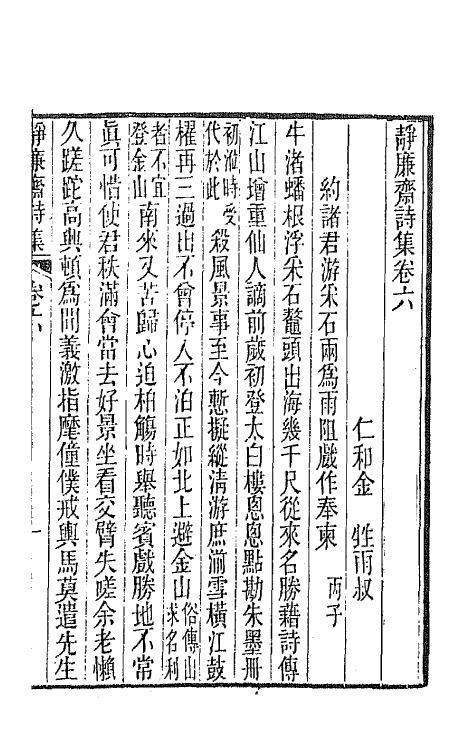 靜廉齋詩集卷六
仁和金 甡雨叔
約諸君游采石兩爲雨阻戲作奉柬 丙子
牛渚蟠根浮采石鼇頭出海幾千尺從來名勝藉詩傳
江山增重仙人謫前歲初登太白樓悤悤點勘朱墨冊
初涖時受代於此 殺風景事至今慙擬縱淸游庶湔雪橫江鼓
櫂再三過山不曾停人不泊正如北上避金山 俗傳山求名利
者不宜登金山 南來又苦歸心迫柏觴時舉聽賓戲勝地不常
眞可惜使君秩滿會當去好景坐看交臂失嗟余老懶
久蹉跎高興頓爲間義激指麾僮僕戒輿馬莫遣先生
靜廉齋詩集 卷六 一